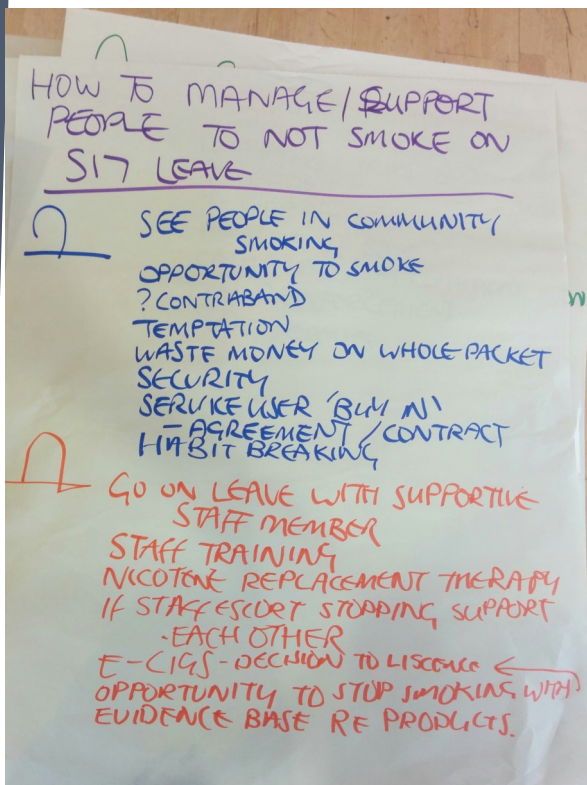 HOW TO MANAGE/SUPPORT
PEOPLE TO NOT SMOKE ON
S17 LEAVE
SEE PEOPLE IN COMMUNITY
SMOKING
OPPORTUNITY TO SMOKE
? CONTRABAND
TEMPTATION
WASTE MONEY ON WHOLE PACKET
SECURITY
SERVICE USER 'BUY IN'
- AGREEMENT / CONTRACT
HABIT BREAKING
GO ON LEAVE WITH SUPPORTIVE
STAFF MEMBER
STAFF TRAINING
NICOTENE REPLACEMENT THERAPY
IF STAFF ESCORT STOPPING SUPPORT
- EACH OTHER
E-CIGS - DECISION TO LISCENCE
OPPORTUNITY TO STOP SMOKING WITH
EVIDENCE BASE RE PRODUCTS.